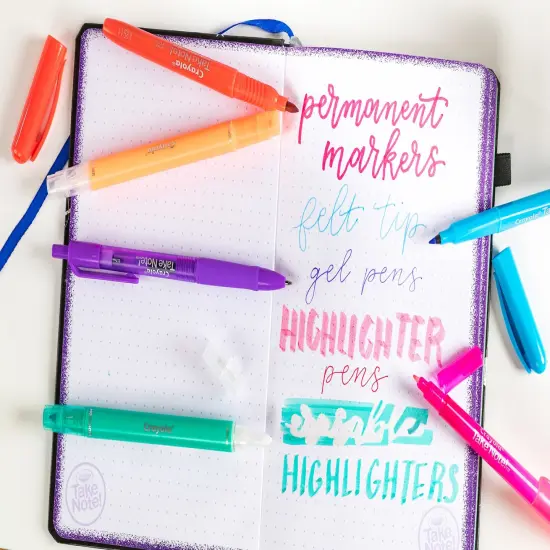 Crayola
Take Note!
permanent
markers
felt tip
gel pens
HIGHLIGHTER
pens
erasable
HIGHLIGHTERS
Crayola
Crayola
Take Note!
Crayola
Crayola
Crayola
Take Note!
Take
Note!